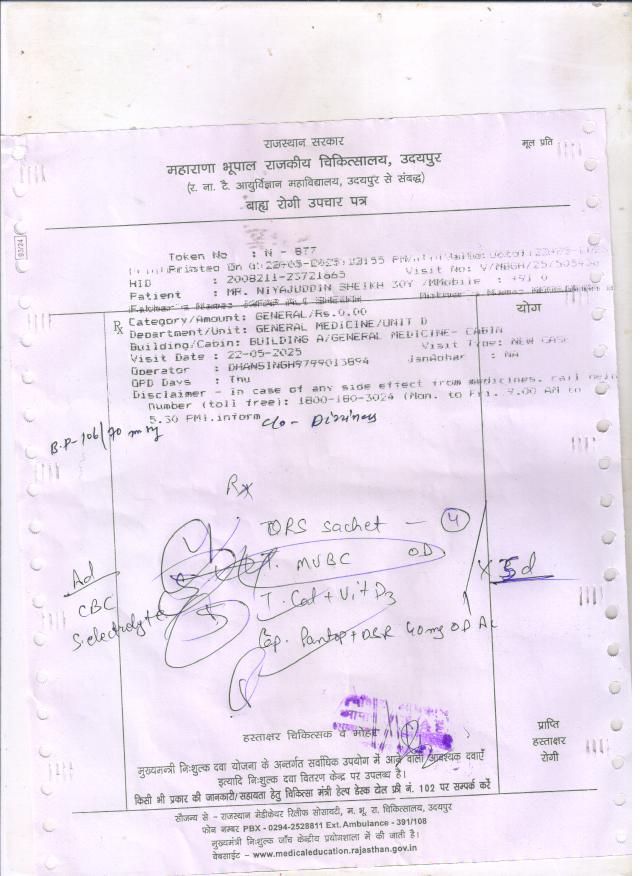 राजस्थान सरकार
मूल प्रति
महाराणा भूपाल राजकीय चिकित्सालय, उदयपुर
(र. ना. टै. आयुर्विज्ञान महाविद्यालय, उदयपुर से संबद्ध)
बाह्य रोगी उपचार पत्र
93/24
Token No : N - 877
Printed On
HID : 2008211-23721665 Visit No:
Patient : MR. NIYAJUDDIN SHEIKH 30Y /M Mobile : +91 0
योग
Rx
Category/Amount: GENERAL/Rs.0.00
Department/Unit: GENERAL MEDICINE/UNIT D
Building/Cabin: BUILDING A/GENERAL MEDICINE- CABIN
Visit Date : 22-05-2025 Visit Type: NEW CASE
Operator : DHANSINGH9799013894 JanAdhar : NA
OPD Days : Thu
Disclaimer - in case of any side effect from medicines, call
number (toll free): 1800-180-3024 (Mon. to Fri. 9.00 AM to
5.30 PM).inform
c/o - Dizziness
B.P-106/70 mmHg
Rx
ORS sachet - 4
T. MVBC OD
x 5d
T. Cal + Vit D3
Cap. Pantop + DSR 40mg OD AC
Ad
CBC
S.electrolyte
हस्ताक्षर चिकित्सक व मोहर
प्राप्ति
हस्ताक्षर
रोगी
मुख्यमन्त्री निःशुल्क दवा योजना के अन्तर्गत सर्वाधिक उपयोग में आने वाली आवश्यक दवाएँ
इत्यादि निःशुल्क दवा वितरण केन्द्र पर उपलब्ध है।
किसी भी प्रकार की जानकारी/सहायता हेतु चिकित्सा मंत्री हेल्प डेस्क टोल फ्री नं. 102 पर सम्पर्क करें
सौजन्य से - राजस्थान मेडीकेयर रिलीफ सोसायटी, म. भू. रा. चिकित्सालय, उदयपुर
फोन नम्बर PBX - 0294-2528811 Ext. Ambulance - 391/108
मुख्यमंत्री निःशुल्क जाँच केन्द्रीय प्रयोगशाला में की जाती है।
वेबसाईट - www.medicaleducation.rajasthan.gov.in